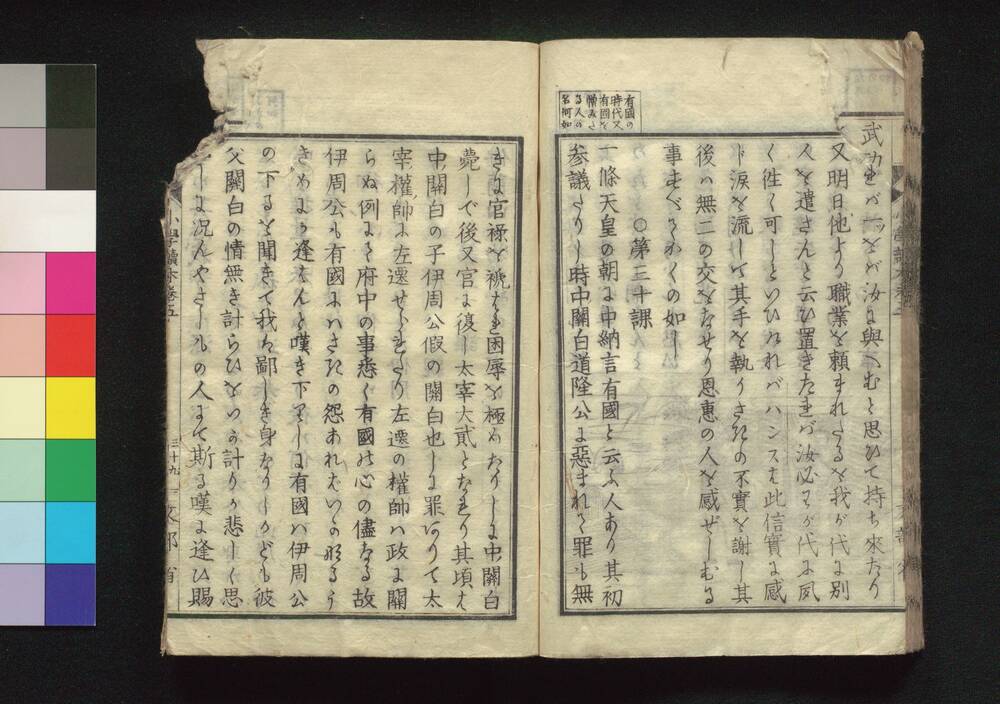 有國の
時代又
有國を
惡みた
る人の
名何如
武功まれバ一ッをバ汝に與へむと思ひて持ち來たり
又明日他より職業を頼まれたるを我が代に別
人を遣さんと云ひ置きたれバ汝必ずわが代に夙
く徃く可しといひければハンスは此信實に感
じ涙を流して其手を執りさきの不實を謝し其
後ハ無二の交をなせり恩惠の人を感ぜしむる
事すべてかくの如し
○第三十課
一條天皇の朝に中納言有國と云ふ人あり其初
参議たりし時中關白道隆公に惡まれて罪も無
きに官禄を褫はれ困辱を極めたりしに中關白
薨して後又官に復し太宰大貳となれり其頃は
中關白の子伊周公假の關白也しに罪ありて太
宰權帥に左遷せられたり左遷の權帥ハ政に關
らぬ例にて府中の事悉く有國の心の儘なる故
伊周公も有國にハさきの怨あれバいかなるう
きめにか逢はんと嘆き下りしに有國ハ伊周公
の下るを聞きて我は鄙しき身なりしかども彼
父關白の情無き計らひをいか計りか悲しく思
しに况んやさしもの人にて斯る嘆に逢ひ賜
小學讀本巻五
三十九
文部省